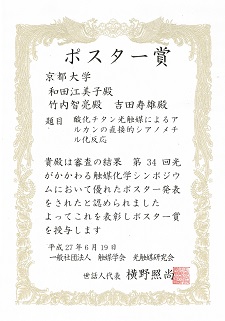 ポスター賞
京都大学
和田江美子殿
竹内智亮殿　吉田寿雄殿
題目　酸化チタン光触媒によるア
ルカンの直接的シアノメチ
ル化反応
貴殿は審査の結果　第 34 回光
がかかわる触媒化学シンポジウ
ムにおいて優れたポスター発表
をされたと認められました
よってこれを表彰しポスター賞
を授与します
平成 27 年 6 月 19 日
一般社団法人　触媒学会　光触媒研究会
世話人代表　横野照尚